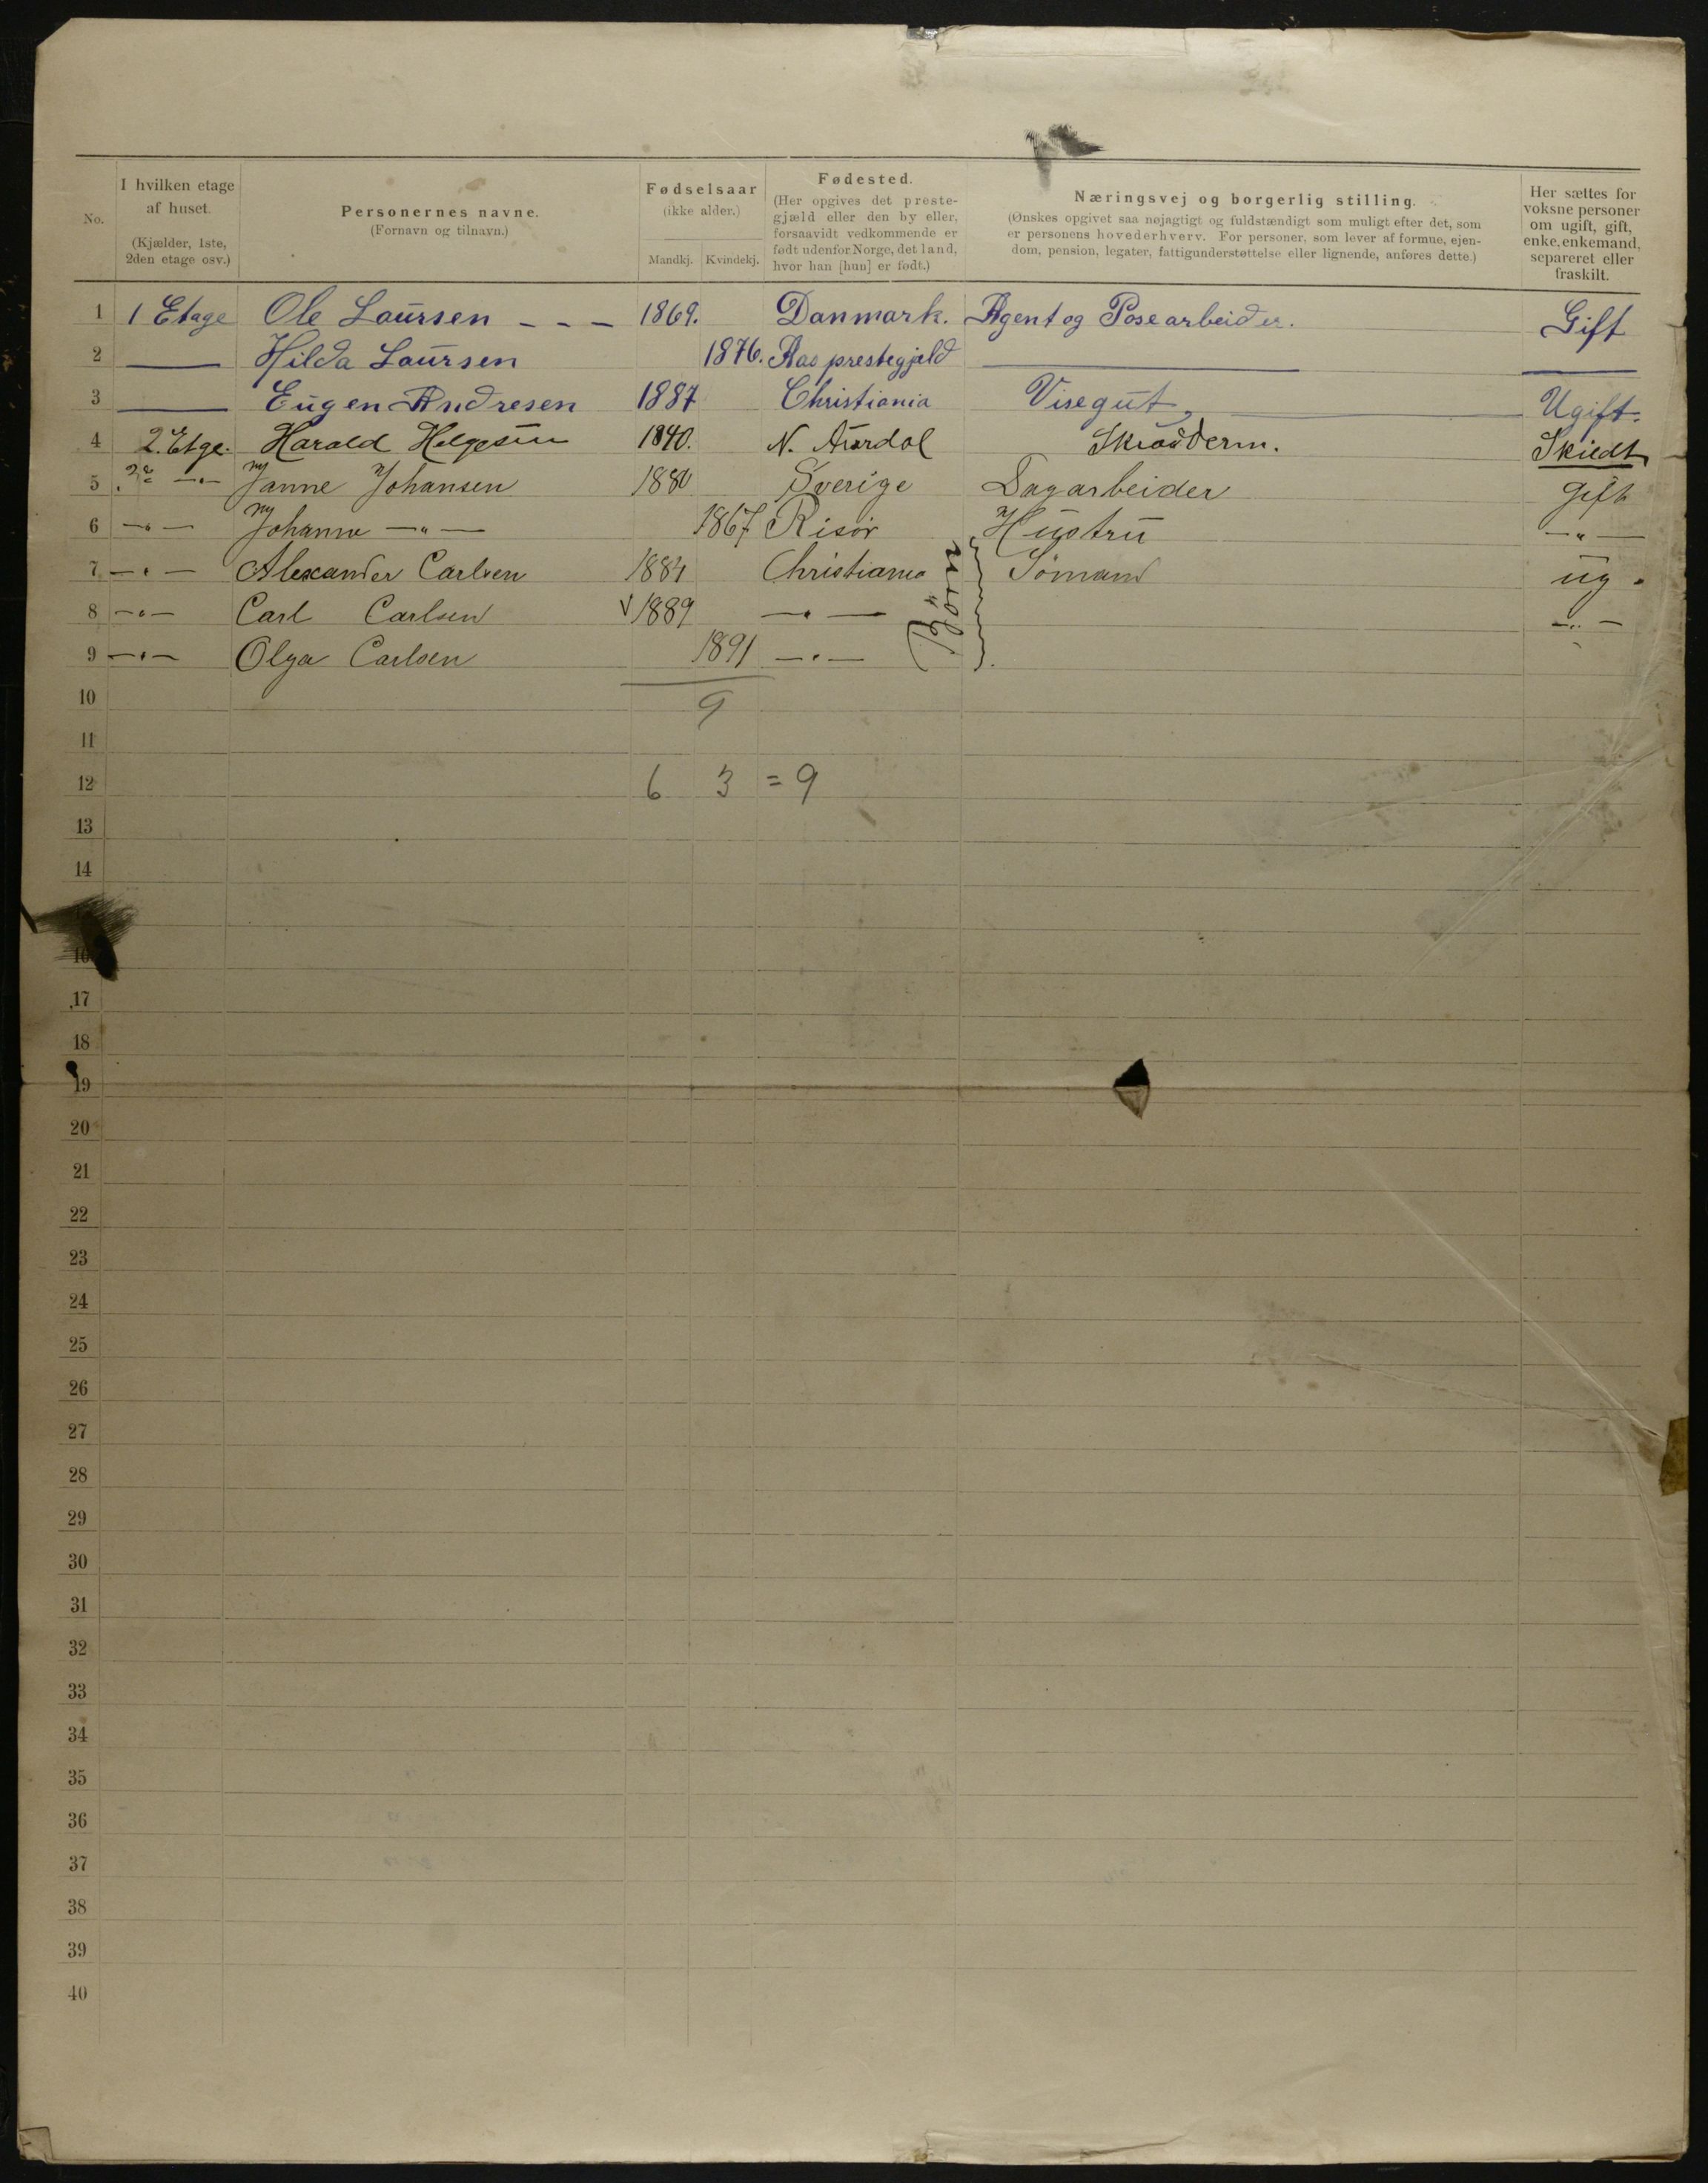 No. I hvilken etage af huset. (Kjælder, 1ste, 2den etage osv.) Personernes navne. (Fornavn og tilnavn.) Fødselsaar (ikke alder.) Mandkj. Kvindekj. Fødested. (Her opgives det prestegjæld eller den by eller, forsaavidt vedkommende er født udenfor Norge, det land, hvor han [hun] er født.) Næringsvej og borgerlig stilling. (Ønskes opgivet saa nøjagtigt og fuldstændigt som muligt efter det, som er personens hovederhverv. For personer, som lever af formue, ejendom, pension, legater, fattigunderstøttelse eller lignende, anføres dette.) Her sættes for voksne personer om ugift, gift, enke, enkemand, separeret eller fraskilt.
1 1 Etage Ole Laursen - - - 1869. Danmark. Agent og Posearbeider. Gift
2 — Hilda Laursen 1876. Aas prestegjeld — —
3 — Eugen Andresen 1887 Christiania Visegut, — Ugift.
4 2. Etge. Harald Helgesen 1840. N. Aurdal Skrædderm. Skiedt
5 2e —"— Janne Johansen 1880 Sverige Dagarbeider gift
6 —"— Johanne —"— 1867 Risør Hustru —"—
7 —"— Alexander Carlsen 1884 Christiania Sømand ug.
8 —"— Carl Carlsen 1889 —"— —"—
9 —"— Olga Carlsen 1891 —"—
Börn
10 9
11
12 6 3 = 9
13
14
16
17
18
19
20
21
22
23
24
25
26
27
28
29
30
31
32
33
34
35
36
37
38
39
40